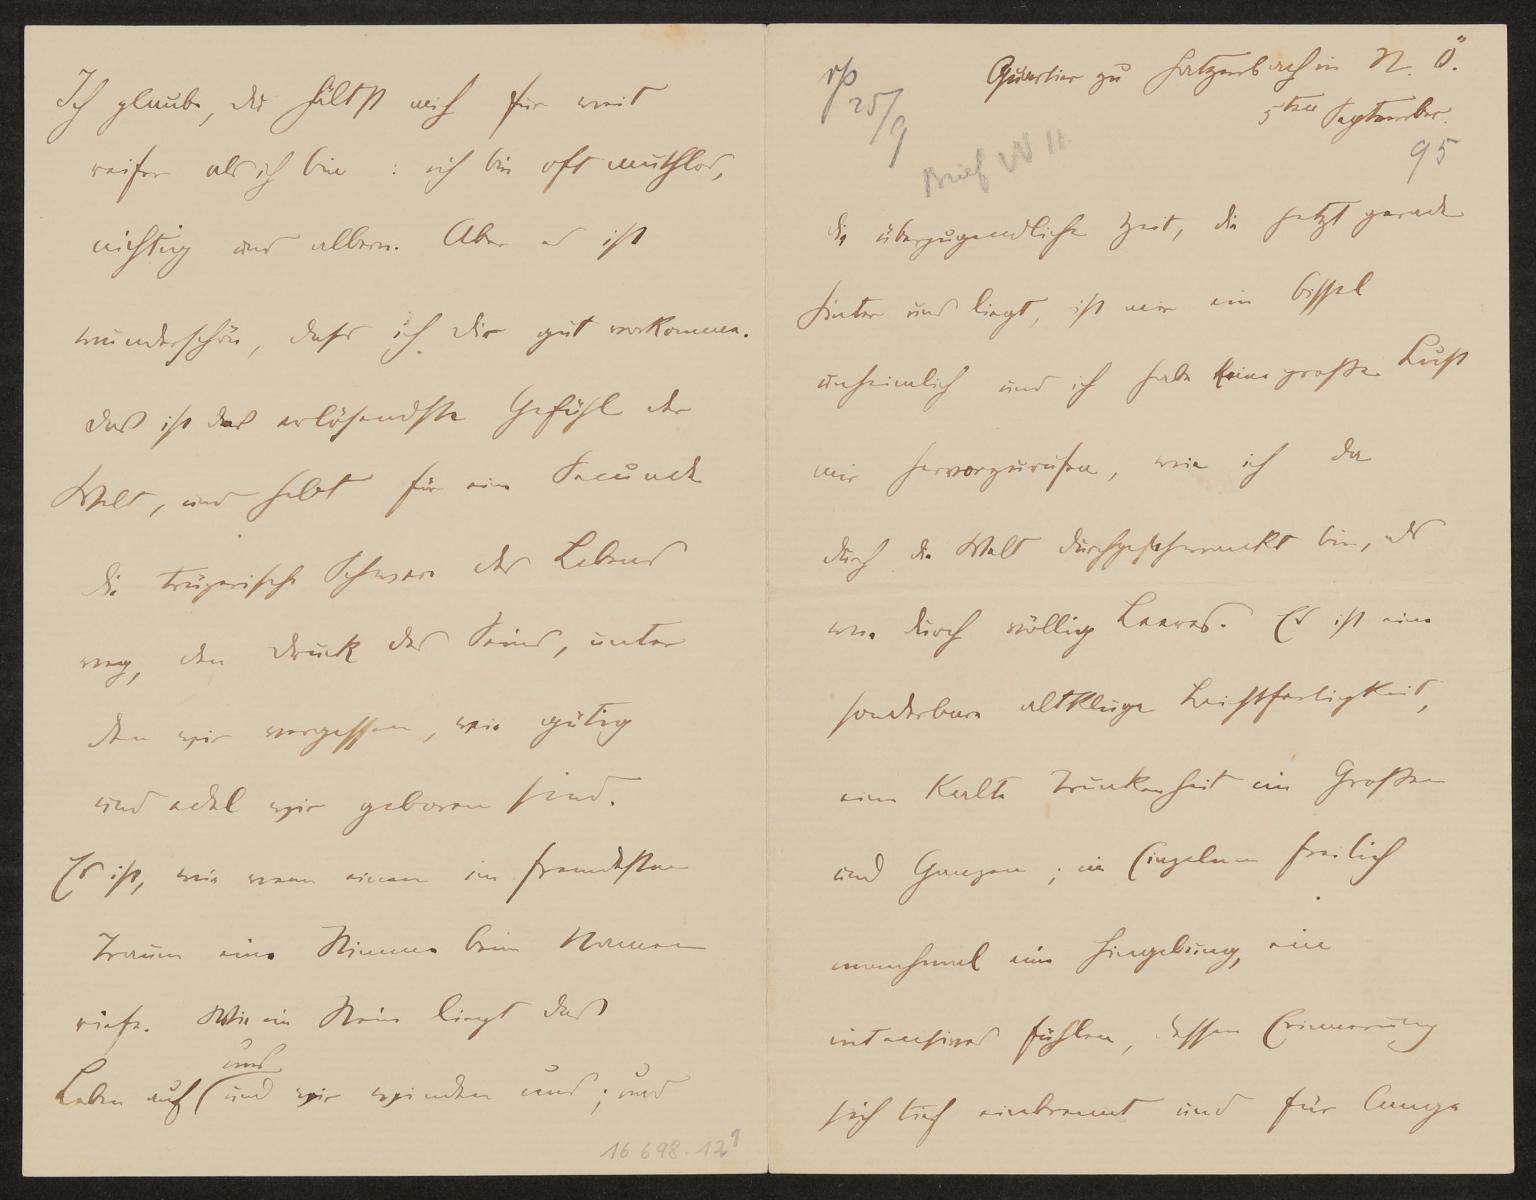 Ich glaube, du hältst mich für weit
reifer als ich bin : ich bin oft muthlos,
nichtig und albern. Aber es ist
wunderschön, dass ich dir gut vorkomme.
das ist das erlösendste Gefühl der
Welt, und hebt für eine Secunde
die trügerische Schwere des Lebens
weg, den Druck des Seins, unter
dem wir vergessen, wie gütig
und edel wir geboren sind.
Es ist, wie wenn einen im fremdesten
Traum eine Stimme beim Namen
riefe. Wie ein Stein liegt das
Leben auf (uns
und wir winden uns; und
16 698. 12
rp
25/9
Quartier zu Hatzenbach in N. Ö.
5ten September.
95
Brief VII
die überjugendliche Zeit, die jetzt gerade
hinter uns liegt, ist mir ein bissel
unheimlich und ich habe keine große Lust
mir hervorzurufen, wie ich da
durch die Welt durchgeschwankt bin, als
wie durch völlig Leeres. Es ist eine
sonderbare altkluge Leichtfertigkeit,
eine Kalte Trunkenheit im Großen
und Ganzen ; im Einzelnen freilich
manchmal eine Hingebung, ein
intensives fühlen, dessen Erinnerung
sich tief einbrennt und für lange